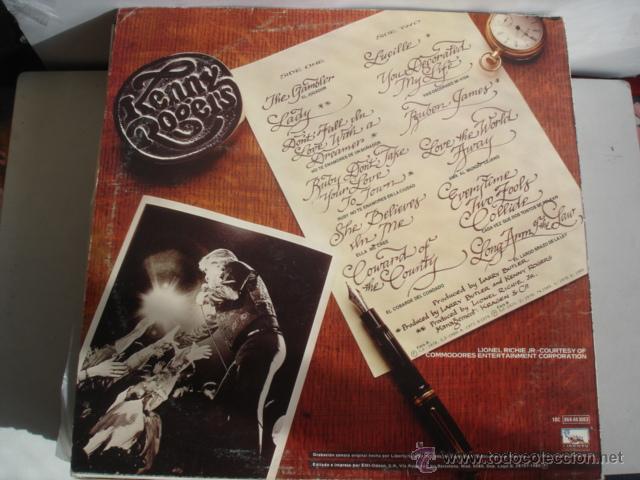 Kenny
Rogers
SIDE ONE
The Gambler
EL JUGADOR
Lady **
Don't Fall In
Love With a
Dreamer *
NO TE ENAMORES DE UN SOÑADOR
Ruby Don't Take
Your Love
To Town *
RUBY NO TE ENAMORES EN LA CIUDAD
She Believes
In Me
ELLA ME CREE
Coward of
the County
EL COBARDE DEL CONDADO
SIDE TWO
Lucille *
You Decorated
My Life
Ruben James *
Love the World
Away
Everytime
Two Fools
Collide
CADA VEZ QUE DOS TONTOS
Long Arm of the Law
EL LARGO BRAZO DE LA LEY
Produced by Larry Butler
* Produced by Larry Butler and Kenny Rogers
** Produced by Lionel Richie Jr.
Management: Kragen & Co.
LIONEL RICHIE JR.-COURTESY OF
COMMODORES ENTERTAINMENT CORPORATION
www.todocoleccion.net